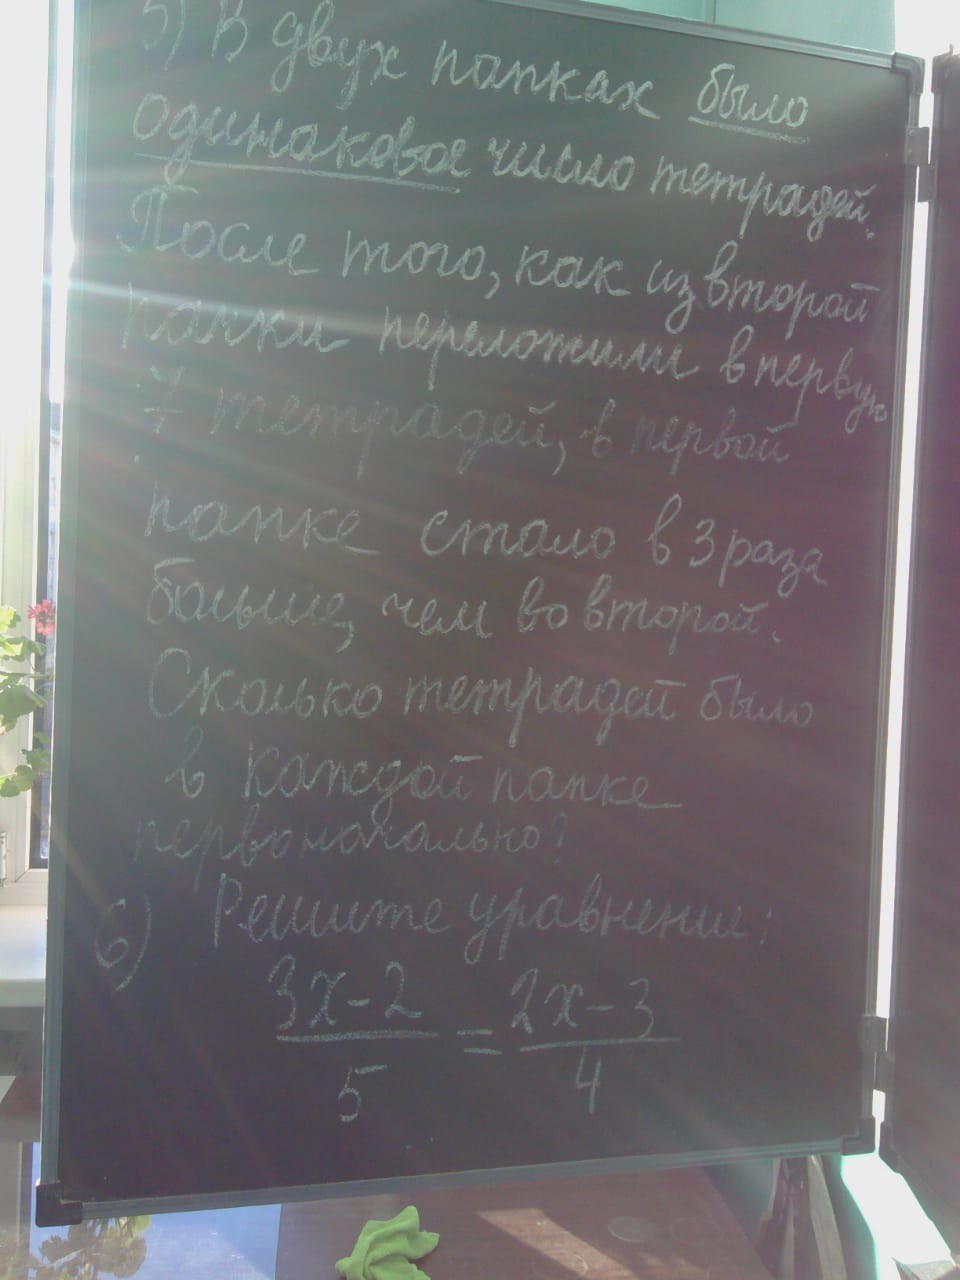 5) В двух папках было
одинаковое число тетрадей.
После того, как из второй
папки переложили в первую
7 тетрадей, в первой
папке стало в 3 раза
больше, чем во второй.
Сколько тетрадей было
в каждой папке
первоначально?
6) Решите уравнение:
3x-2 = 2x-3
5 4